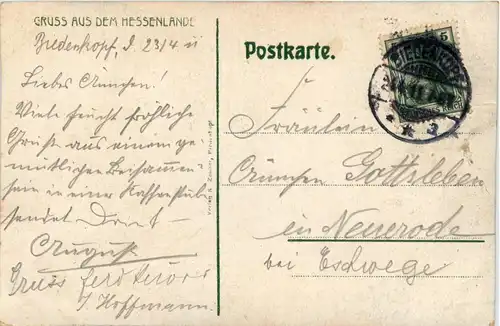 GRUSS AUS DEM HESSENLANDE
Biedenkopf, d. 23/4 11
Liebes Ännchen!
Viele feucht fröhliche
Grüße aus einem ge-
mütlichen Beisammen-
sein in einer
sendet Dir
August
Gruss
J. Hoffmann
Postkarte.
5
BIEDENKOPF
Fräulein
Ännchen Gottsleben
in Neuerode
bei Eschwege